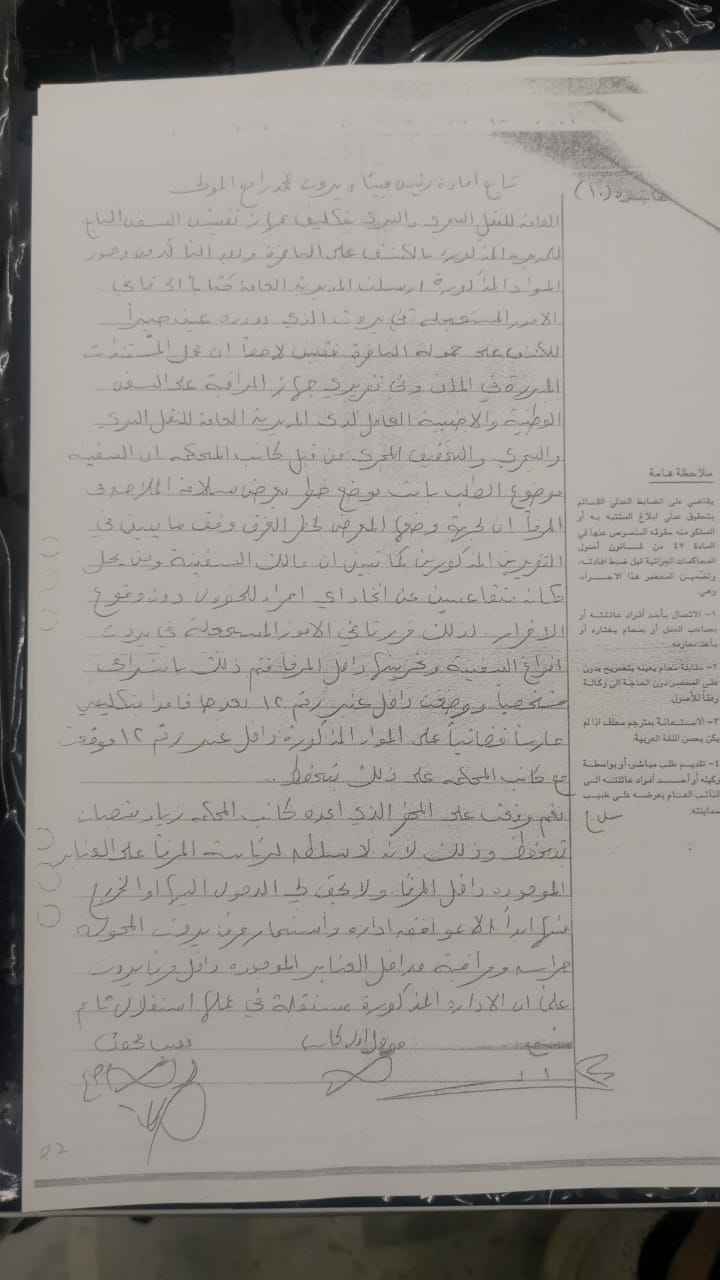 تابع افادة رئيس ميناء بيروت محمد رامح المولى
صفحة (١٠)
العامة للنقل البري والبحري بتكليف جهاز تفتيش السفن التابع
للمديرية المذكورة بالكشف على الباخرة وبعد التأكد من وجود
المواد المذكورة ارسلت المديرية العامة كتاباً الى قاضي
الامور المستعجلة في بيروت الذي بدوره عين خبيراً
للكشف على حمولة الباخرة فتبين لاحقاً ان مجمل المستندات
المبرزة في الملف وفي تقريري جهاز المراقبة على السفن
الوطنية والاجنبية العامل لدى المديرية العامة للنقل البري
والبحري والتحقيق المجرى من قبل كاتب المحكمة ان السفينة
موضوع الطلب باتت بوضع خطر يعرض سلامة الملاحة في
المرفأ ان لجهة وضعها المعرض لخطر الغرق وفق ما يبين في
التقريرين المذكورين كما تبين ان مالك السفينة ومن يحل
مكانه متقاعسين عن اتخاذ اي اجراء للحؤول دون وقوع
الاضرار. لذلك قرر قاضي الامور المستعجلة في بيروت
افراغ السفينة وتخزينها داخل المرفأ فتم ذلك باشرافي
شخصياً ووضعت داخل عنبر رقم ١٢ بعدها قاموا بتكليفي
حارساً قضائياً على المواد المذكورة داخل عنبر رقم ١٢ فوقعت
مع كاتب المحكمة على ذلك بتحفظ..
نعم وقعت على المحضر الذي اعده كاتب المحكمة زياد شعبان
بتحفظ وذلك لانه لا سلطة لرئاسة المرفأ على العنابر
الموجودة داخل المرفأ ولا يحق لي الدخول اليها او الخروج
منها ابداً الا بموافقة ادارة واستثمار مرفأ بيروت المخولة
حراسة ومراقبة مداخل العنابر الموجودة داخل مرفأ بيروت
علماً ان الادارة المذكورة مستقلة في عملها استقلال تام
معاون اول كاتب
نقيب محقق
ملاحظة هامة
يقتضي على الضابط العدلي القائم
بتحقيق عدلي ابلاغ المشتبه به أو
المشكو منه حقوقه المنصوص عنها في
المادة ٤٧ من قانون أصول
المحاكمات الجزائية قبل ضبط افادته،
وتضمين المحضر هذا الاجراء،
وهي:
١- الاتصال بأحد أفراد عائلته أو
بصاحب العمل أو بمحام يختاره أو
بأحد معارفه.
٢- مقابلة محام يعينه بتصريح يدون
على المحضر دون الحاجة الى وكالة
وفقاً للأصول.
٣- الاستعانة بمترجم محلف اذا لم
يكن يحسن اللغة العربية.
٤- تقديم طلب مباشر، أو بواسطة
وكيله أو أحد أفراد عائلته الى
النائب العام بعرضه على طبيب
لمعاينته.
27